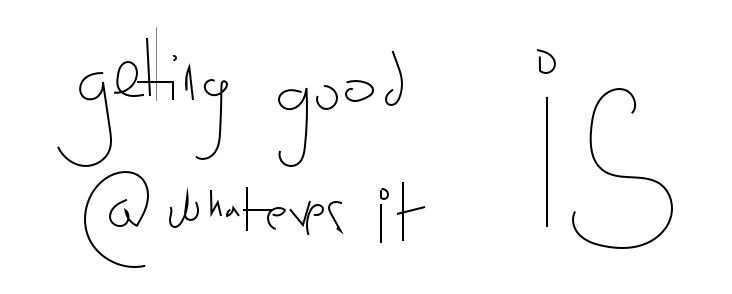 getting good
@ whatever it is